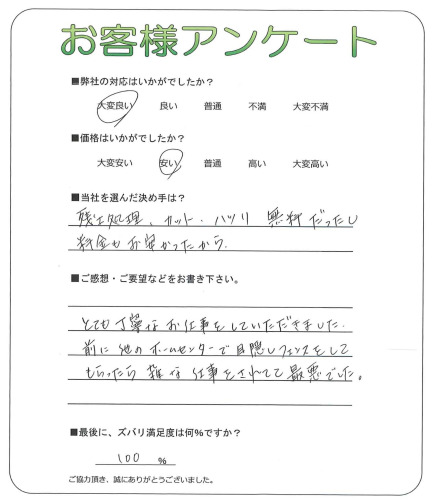 お客様アンケート
■弊社の対応はいかがでしたか？
大変良い 良い 普通 不満 大変不満
■価格はいかがでしたか？
大変安い 安い 普通 高い 大変高い
■当社を選んだ決め手は？
残土処理、カット、ハツリ 無料だったし
料金もお安かったから。
■ご感想・ご要望などをお書き下さい。
とても丁寧なお仕事をしていただきました。
前に他のホームセンターで目隠しフェンスをして
もらったら雑な仕事をされてて最悪でした。
■最後に、ズバリ満足度は何％ですか？
100 ％
ご協力頂き、誠にありがとうございました。